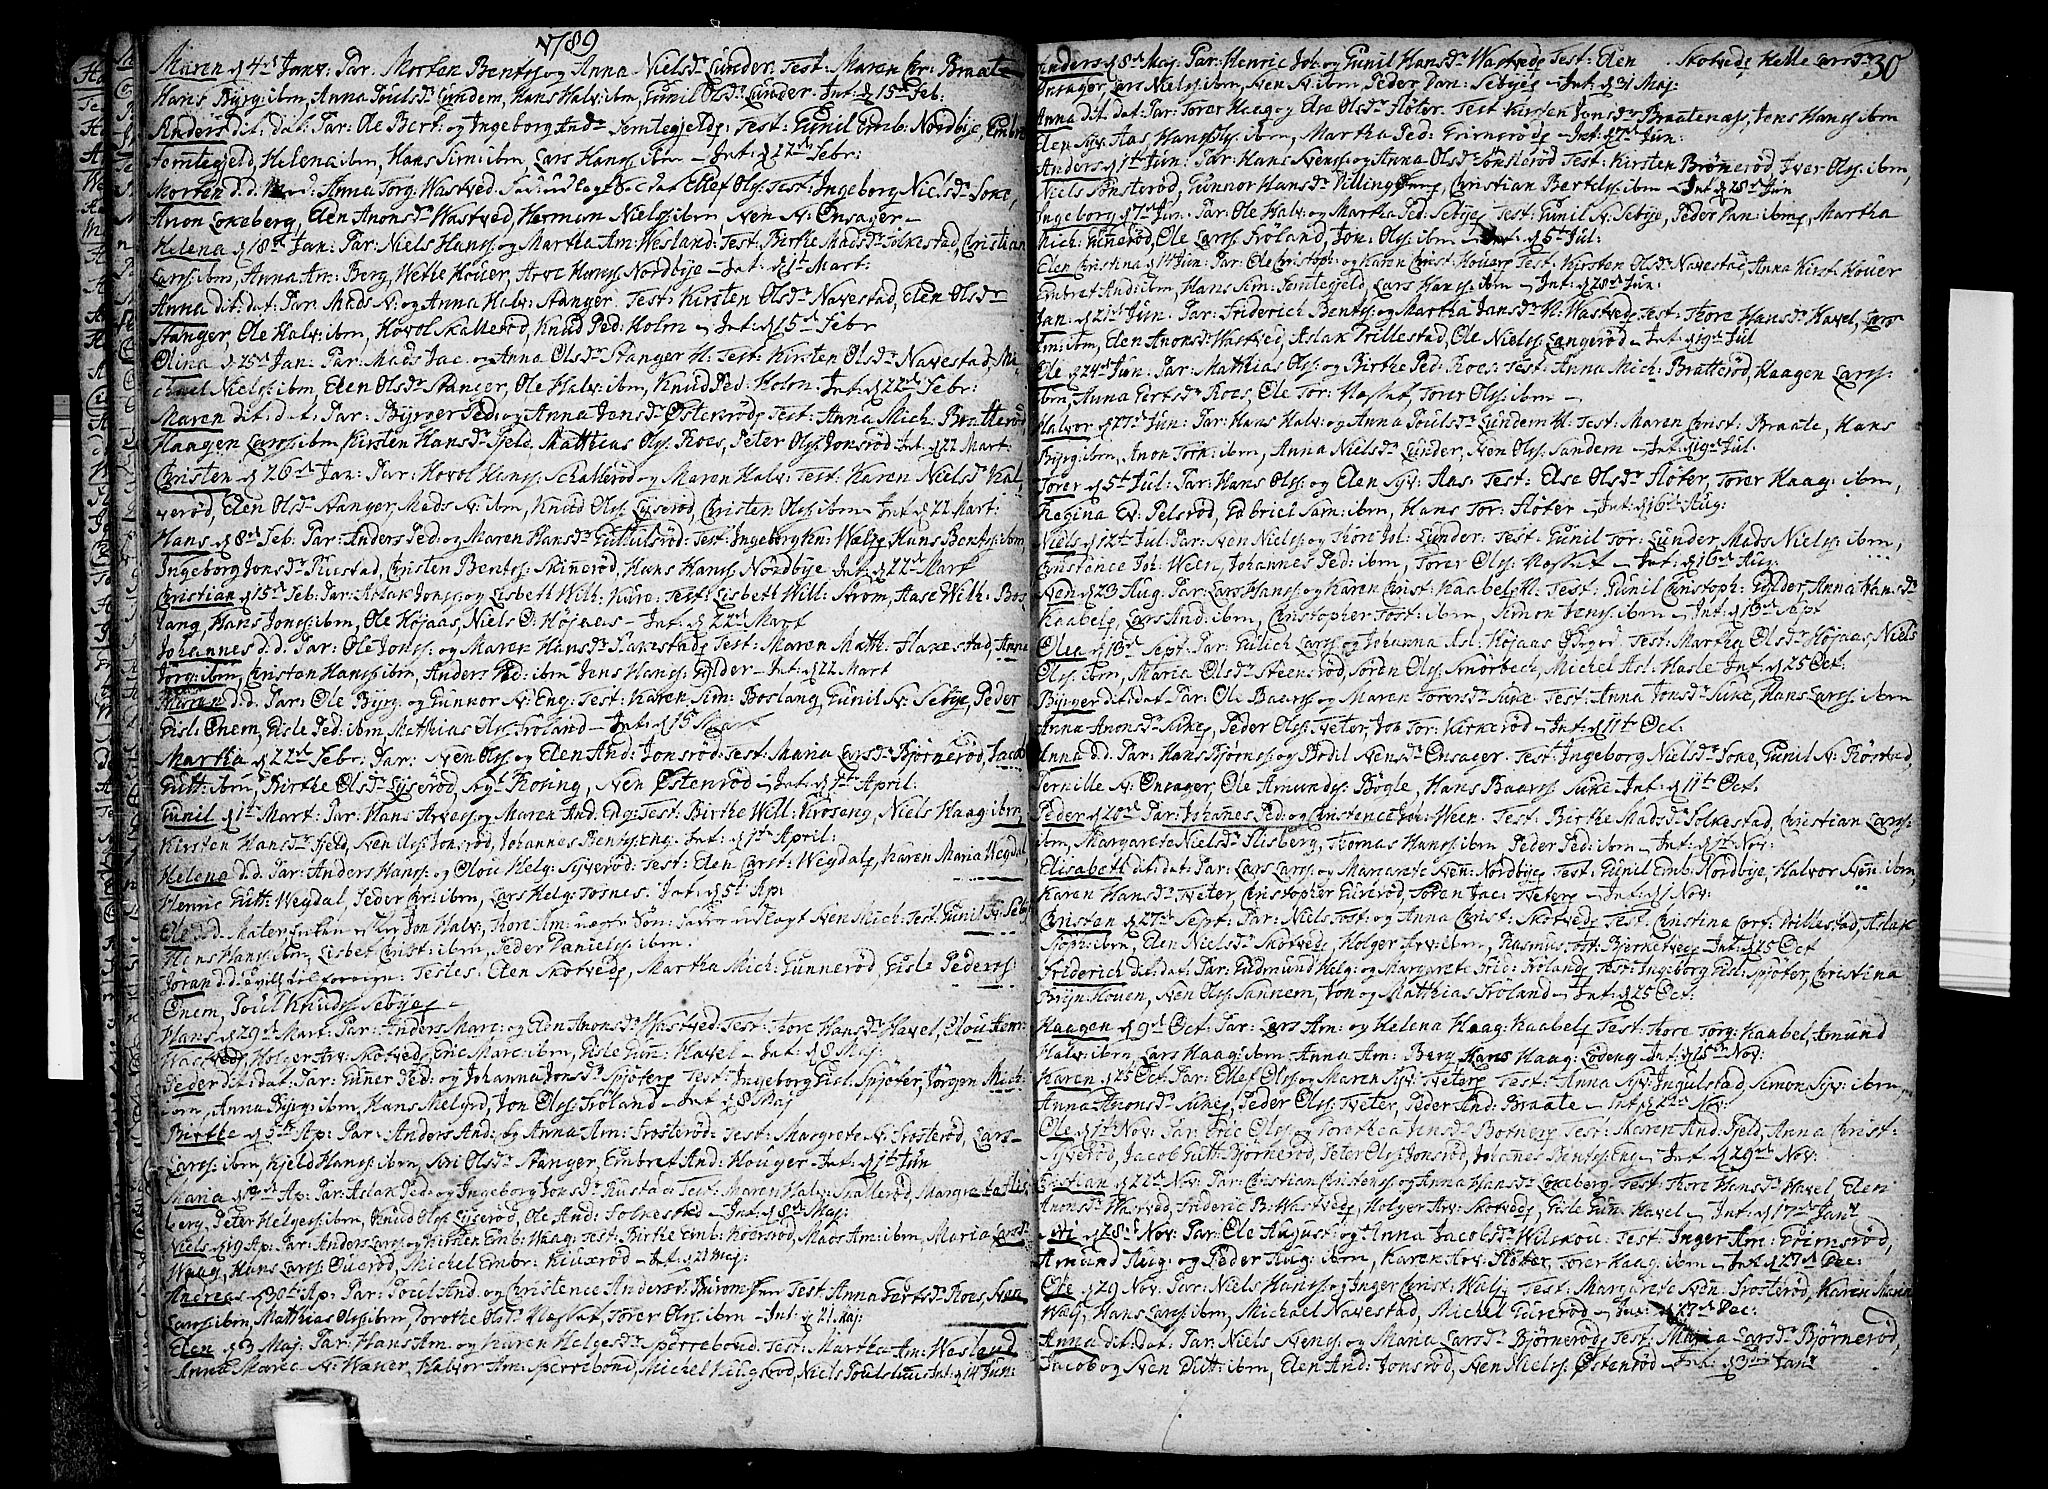 1789
Maren d 4de Janv: Par: Morten Bents: og Anna Nielsdr Lunder. Test: Maren Chr: Braate
Hans Byrg: ibm, Anna Poulsdr Lundem, Hans Halv: ibm, Gunil Olsdr Lunder. Int: d 15de Feb.
Anders dit: dat: Par: Ole Bert: og Ingeborg Andr Semtegjeld; Test: Gunil Emb: Nordbye, Embre
Semtegjeld, Helena ibm, Hans Sim: ibm, Lars Hans: ibm – Int: d 22de Febr:
Morten d.d. Anna Torg: Wastved. Ellef Ols: Test: Ingeborg Nielsdr Sone,
Anon Lokeberg, Elen Anonsdr Wastved, Herman Niels: ibm Sven Sv: Onsager –
Helena d 18de Jan: Par: Niels Hans: og Martha Am: Wesland: Test: Birthe Madsdr Solkestad, Christian
Lars: ibm, Anna Am: Berg, Wethe Houer, Arve Hans: Nordbye – Int: d 1te Mart:
Anna dit: dat: Par: Mads Sv: og Anna Halv: Stanger. Test: Kirsten Olsdr Navestad, Elen Olsdr
Stanger, Ole Halv: ibm, Hovol Skallerod, Knud Ped: Holm – Int: d 15de Febr
Olina d 25de Jan: Par: Mads Jac: og Anna Olsdr Stanger H: Test: Kirsten Olsdr Navestad, Mi
chael Niels: ibm, Elen Olsdr Stanger, Ole Halv: ibm, Knud Ped: Holm. Int: d 22de Febr:
Maren dit: dat: Par: Byrger Ped: og Anna Jensdr Østenrød; Test: Anna Mich: Bratterød
Haagen Lars: ibm Kirsten Hansdr Fjeld, Matthias Ols: Roes, Peter Ols: Jonsrød Int: d 22 Mart:
Christen d 26de Jan: Par: Hovol Hans: Schallerød og Maren Halv: Test: Karen Nielsdr Kal,
verød, Elen Olsdr Stanger, Mads Sv: ibm, Knud Ols: Lyserød, Christen Ols: ibm – Int: d 22 Mart:
Hans d 8de Feb: Par: Anders Ped: og Maren Hansdr Guttulsrød: Test: Ingeborg Kn: Wælj, Hans Bents: ibm,
Ingeborg Jonsdr Rustad, Christen Bents: Skinerød, Hans Hans: Nordbye Int: d 22de Mart
Christian d 15de Feb: Par: Aslak Jons: og Lisbeth Will: Kure: Test: Lisbeth Will: Strøm, Aase Wilh: Bos
lang, Hans Jons: ibm, Ole Højaas, Niels O: Højaas – Int: d 22de Mart
Johannes d.d. Par: Ole Jons: og Maren Hansdr Flakestad; Test: Maren Matt: Flakestad, Anne
Jorg: ibm, Christen Hans: ibm, Anders Ped: ibm Jens Hans: Gylder – Int: d 22 Mart
Maren d.d. Par: Ole Byrg: og Gunnor Sv: Eng: Test: Karen Sim: Boslang, Gunil Sv: Sebye, Peder
Gisl: Enem, Gisle Ped: ibm, Mathias Ols: Froland – Int: d 15 Mart
Martha d 22de Febr: Par: Sven Ols: og Elen And: Jonsrød: Test: Maria Larsdr Bjørnerød, Jacob
Gutt: ibm, Birthe Olsdr Lyserød, Kroseng, Sven Østenrød – Int: d 1te April:
Gunil d 1te Mart: Par: Hans Arves: og Maren And: Eng: Test: Birthe Will: Kroseng, Niels Haag: ibm,
Kirsten Hansdr Fjeld, Sven Ols: Jonsrød, Johannes Bents: Eng. Int: d 1te April:
Helena d.d. Par: Anders Hans: og Olou Helg: Syverød: Test: Elen Carst: Wegdal, Karen Maria Wegdal,
Henric Gutt: Wegdal, Peder Chr: ibm, Lars Helg: Tosnes. Int: d 5te Ap:
Ole d.d. Mater Jon Halv, Thore Am: Fader udlagt Sven Mich: Test: Gunil Sv: Seby
Hans Hans: ibm, Lisbet Christ: ibm, Peder Daniels: ibm.
Joran d.d. Testes: Elen Skotved, Martha Mich: Gunnerød, Gisle Peders:
Enem, Poul Knuds: Sebye –
Hans d 29de Mart: Par: Anders Marc: og Elen Anonsdr Wastved: Test: Thore Hansdr Havel, Olou Henr:
Wastved, Holger Arv: Skotved, Eric Marc: ibm, Gisle Gun: Havel – Int: d 8 Maj:
Peder dit: dat: Par: Guner Ped: og Johanna Jonsdr Spjøter; Test: Ingeborg Gisl: Spjøter, Jørgen Mich:
ibm, Anna Byrg: ibm, Hans Melgrd, Jon Ols: Frøland – Int: d 8 Maj
Birthe d 5te Ap: Par: Anders And: og Anna Am: Frosterød: Test: Margrete Sv: Frosterød, Lars
Lars: ibm, Kjeld Hans: ibm, Siri Olsdr Stanger, Embret And: Houger – Int: d 1te Jun
Maria d 9de Ap: Par: Aslak Ped: og Ingeborg Jonsdr Rustad: Test: Maren Halv: Skallerød, Margreta Flis
berg, Peter Helges: ibm, Knud Ols: Lyserød, Ole And: Solkestad – Int: d 8de Maj:
Niels d 19 Ap: Par: Anders Lars: og Kirsten Emb: Waag: Test: Birthe Emb: Kiersrød, Mads Am: ibm, Maria Larsdr
Waag, Hans Lars: Querød, Michel Embr: Kiuxrød – Int: d 21 Maj:
Andreas d 30te Ap: Par: Poul And: og Christence Andersdr Test: Anna Gertsdr Roes, Sven
Lars: ibm, Mathias Ols: ibm, Dorothe Olsdr Næsset, Torer Ols: ibm – Int: d 21 Maj:
Elen d 3 Maj: Par: Hans Am: og Karen Helgesdr Sperrebond: Test: Martha Am: Wesland
Anne Marie Sv: Wæner, Halvor Am: Sperrebond, Michel Huugsrød, Niels Pouls: Int: d 14 Jun:
30
Anders d 8de Maj: Par: Henric Joh: og Gunil Hansdr Wastved; Test: Elen Skotved, Helle Larsdr
Onsager, Lars Niels: ibm, Sven Sv: ibm, Peder Dan: Sebye – Int: d 31 Maj:
Anna dit: dat: Par: Torer Haag: og Else Olsdr Fløter. Test: Kirsten Jonsdr Braatenæs, Jens Hans: ibm
Elen Syv: Aas, Hans Ols: ibm, Martha Ped: Grimsrød – Int: d 7de Jun:
Anders d 1te Jun: Par: Hans Svens: og Anna Olsdr Sønsterød Test: Kirsten Brønerød, Iver Ols: ibm,
Niels Sønsterød, Gunnor Hansdr Dilling, Christian Bertels: ibm – Int: d 28de Jun
Ingeborg d 7de Jun: Par: Ole Halv: og Martha Ped: Sebye; Test: Gunil Sv: Sebye, Peder Dan: ibm, Martha
Mich: Gunerød, Ole Lars: Frøland, Jon: Ols: ibm – Int: d 5te Jul:
Elen Christina d 14de Jun: Par: Ole Christoph: og Karen Christ: Houer; Test: Kirsten Olsdr Navestad, Anna Kirst: Houer
Embret And: ibm, Hans Sim: Semtegjeld, Lars Hans: ibm – Int: d 28de Jun:
Jan: d 21de Jun: Par: Friderich Bents: og Martha Jansdr N: Wastved; Test: Thore Hansdr Havel, Lars
Am: ibm, Elen Anonsdr Wastved, Aslak Prillestad, Ole Niels: Langerød – Int: d 19de Jul
Ole d 24de Jun: Par: Matthias Ols: og Birthe Ped: Roes: Test: Anna Mich: Bratterød, Haagen Lars:
ibm, Anna Gertsdr Roes, Ole Tor: Næsset, Torer Ols: ibm –
Halvor d 27de Jun: Par: Hans Halv: og Anna Poulsdr Lundem H: Test: Maren Christ: Braate, Hans
Byrg: ibm, Anon Tork: ibm, Anna Nielsdr Lunder, Sven Ols: Sandem – Int: d 19de Jul:
Torer d 5te Jul: Par: Hans Ols: og Elen Syv: Aas: Test: Else Olsdr Fløter, Torer Haag: ibm,
Regina Ev: Pelsrød, Gabriel Sam: ibm, Hans Tor: Fløter – Int: d 16de Aug:
Niels d 12te Jul: Par: Sven Niels: og Thore Joh: Lunder: Test: Gunil Tor: Lunder, Mads Niels: ibm,
Constance Joh: Ween, Johannes Ped: ibm, Torer Ols: Næsset – Int: d 16de Aug:
Sven d 23 Aug: Par: Lars Hans: og Karen Christ: Kaabel N: Test: Gunil Christoph: Gylder, Anna Hansdr
Kaabel, Lars And: ibm, Christopher Tost: ibm, Simon Jens: ibm – Int: d 13de Sept
Olea d 13de Sept: Par: Gulich Lars: og Johanna Asl: Højaas Østgrd; Test: Martha Olsdr Højaas, Niels
Ols: ibm, Maria Olsdr Steensrød, Søren Ols: Knorbech, Michel Asl: Hasle – Int: d 25 Oct:
Byrger dit: dat: Par: Ole Baars: og Maren Torersdr Suke: Test: Anna Jonsdr Suke, Hans Lars: ibm
Anna Anonsdr Suke, Peder Ols: Tveter, Joh Tor: Kirkerød – Int: d 11te Oct:
Anna d.d. Par: Hans Bjørns: og Bodil Svensdr Onsager – Test: Ingeborg Nielsdr Sone, Gunil Sv: Røstad,
Pernille Sv: Onsager, Ole Amunds: Bøgle, Hans Baars: Suke – Int: d 11te Oct.
Peder d 20de Par: Johanes Ped: og Christence Joh: Ween: Test: Birthe Madsdr Solkestad, Christian Lars:
ibm, Margarete Nielsdr Flisberg, Thomas Hans: ibm Peder Ped: ibm – Int: d 1te Nov:
Elisabeth dit: dat: Par: Lars Lars: og Margarete Sven: Nordbye: Test: Gunil Emb: Nordbye, Halvor Sven: ibm,
Karen Hansdr Tveter, Christopher Gunerød, Soren Jac: Tveter – Int: d 1 Nov:
Christen d 27de Sept: Par: Niels Tost: og Anna Christ: Skotved; Test: Christina Corf: Prillestad, Aslak
Stoph: ibm, Elen Nielsdr Skotved, Holger Arv: ibm, Rasmus Tost: Bjerketved – Int: d 25 Oct
Friderich dit: dat: Par: Gudmund Helg: og Margarete Frid: Frøland; Test: Ingeborg Gisl: Spjøter, Christina
Bryn: Houen, Sven Ols: Sannem, Jon og Matthias Frøland – Int: d 25 Oct:
Haagen d 9de Oct: Par: Lars Am: og Helena Haag: Kaabel; Test: Thore Torg: Kaabel, Amund
Halv: ibm, Lars Haag: ibm, Anna Am: Berg Hans Haag: Lødeng – Int: d 15de Nov:
Karen d 25 Oct: Par: Ellef Ols: og Maren Syv: Tveter; Test: Anna Syv: Ingulstad, Simon Syv: ibm
Anna Anonsdr Suke, Peder Ols: Tveter, Peder And: Braate – Int: d 22de Nov:
Ole d 1te Nov: Par: Eric Ols: og Dorothea Jensdr Botner; Test: Maren And: Fjeld, Anna Christ:
Syverød, Jacob Gutt: Bjørnerød, Peter Ols: Jonsrød, Johanes Bents: Eng – Int: d 29de Nov:
Christian d 22de Nov: Par: Christian Christens: og Anna Hansdr Lokeberg: Test: Thore Hansdr Havel, Elen
Anonsdr Haarvød, Frideric B: Wastved, Holger Arv: Skotved, Gisle Gun: Havel – Int: d 17de Janv
Siri d 28de Nov: Par: Ole August: og Anna Jacobsdr Wilskou: Test: Inger Am: Grimsrød,
Amund Aug: og Peder Aug: ibm, Karen Arv: Fløter, Torer Haag: ibm – Int: d 27de Dec:
Ole d 29 Nov: Par: Niels Hans: og Inger Christ: Wælj; Test: Margarete Sven: Frosterød, Karen Maria
Wælj, Hans Lars: ibm, Michael Navestad, Michel Gunerød – Int: d 27de Dec:
Anna dit: dat: Par: Niels Svens: og Maria Larsdr Bjørnerød; Test: Maria Larsdr Bjørnerød,
Jacob og Sven Ditt: ibm, Elen And: Jonsrød, Sven Niels: Østenrød – Int: d 3de Janv